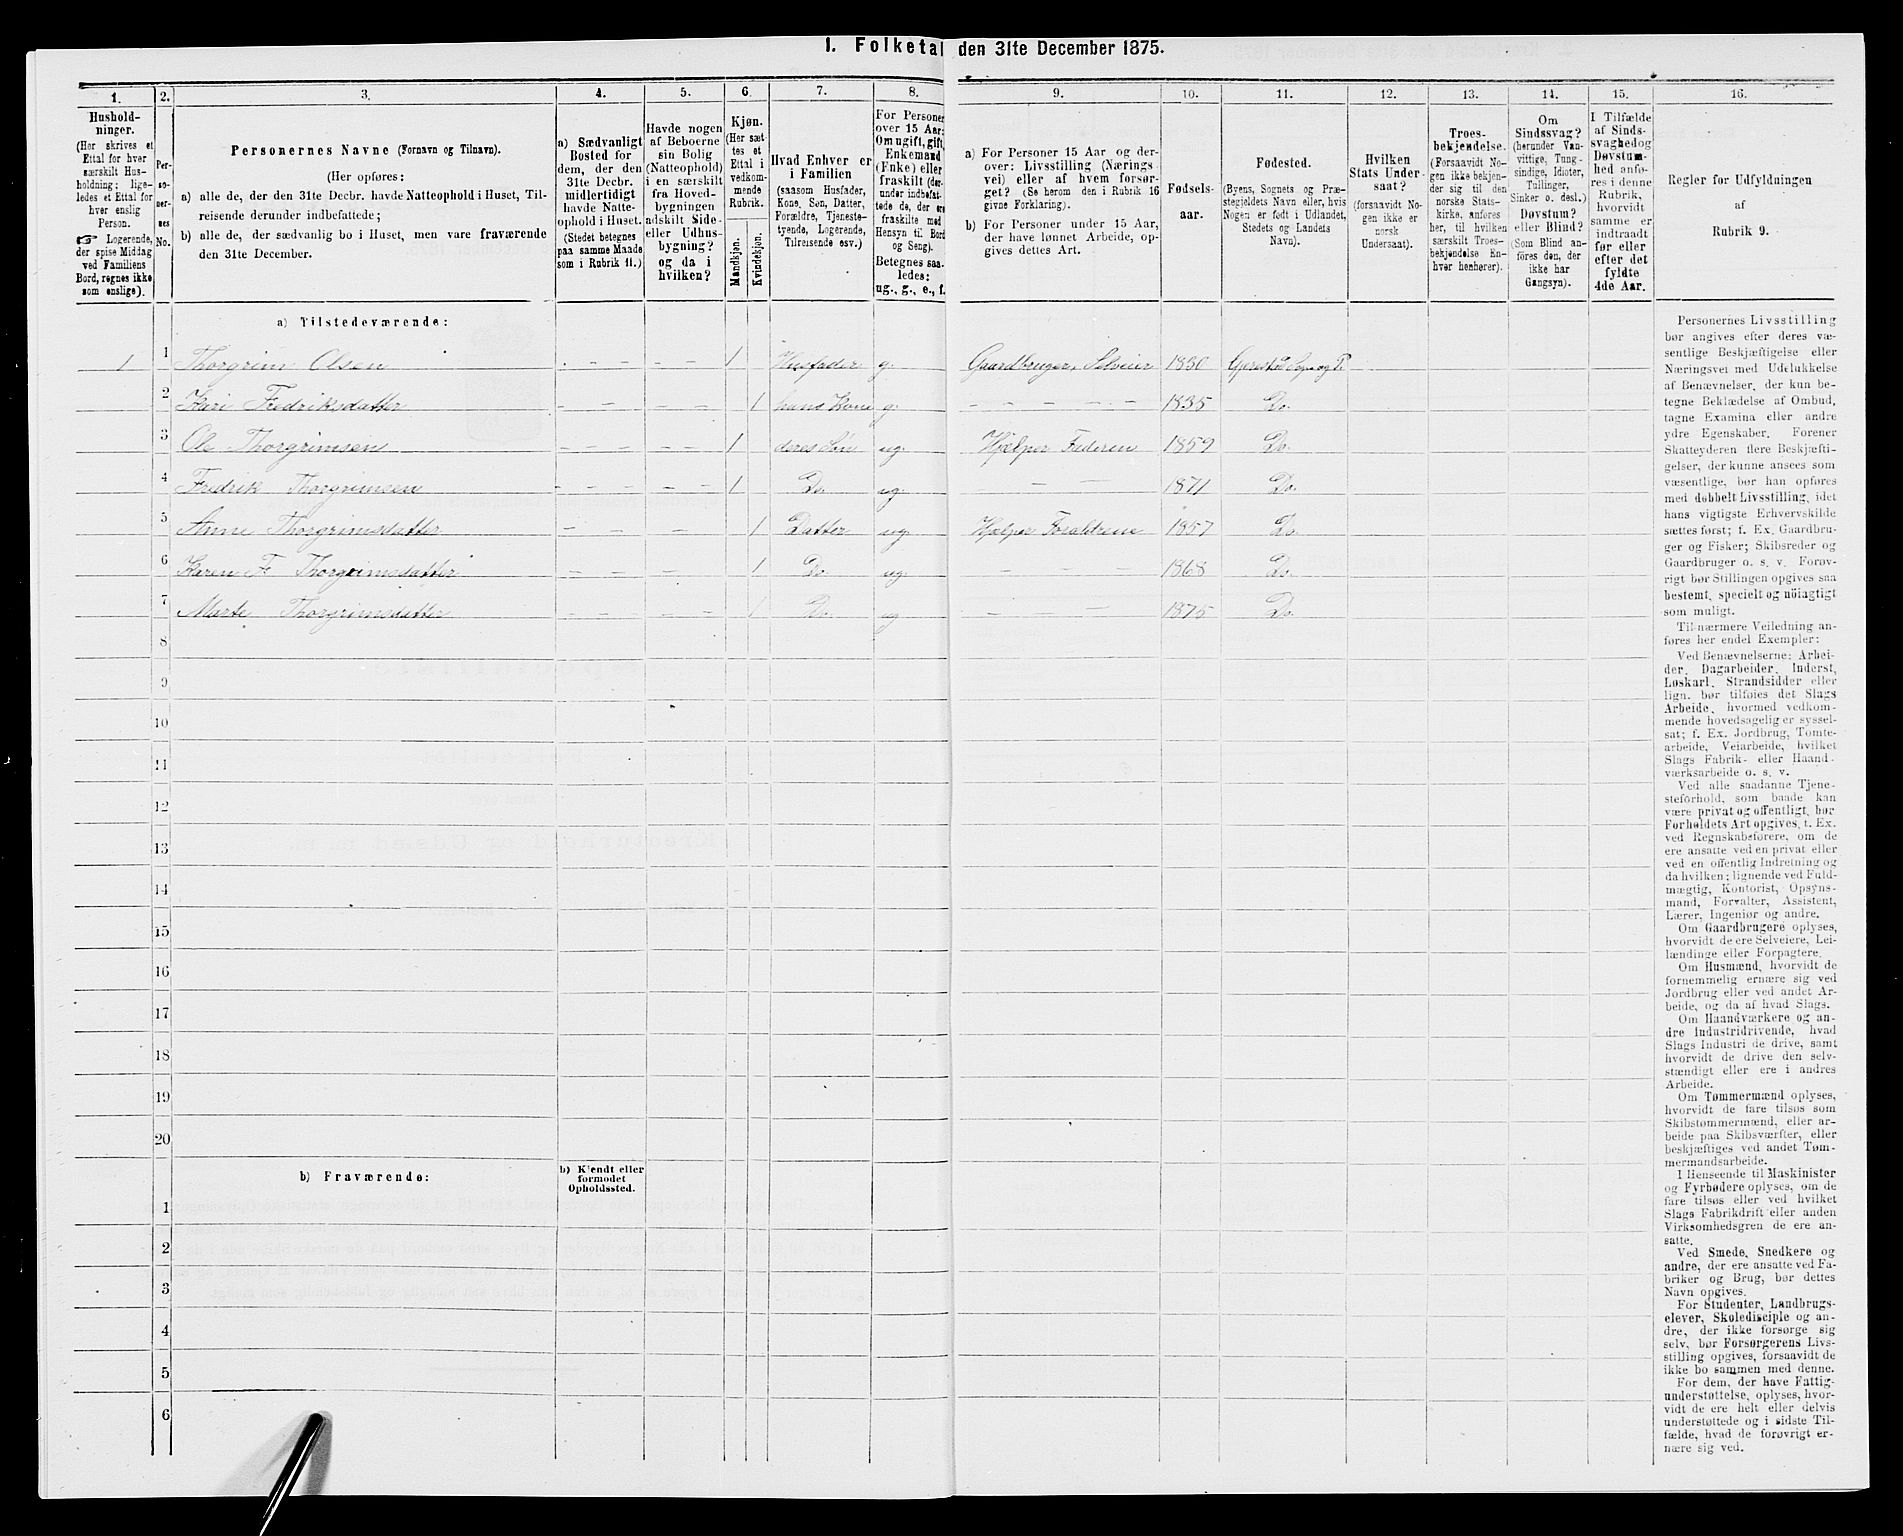 I. Folketal den 31te December 1875.
1.
Hushold-
ninger.
(Her skrives et
Ettal for hver
særskilt Hus-
holdning; lige-
ledes et Ettal for
hver enslig
Person.
☞ Logerende,
der spise Middag
ved Familiens
Bord, regnes ikke
som enslige).
2.
Per-
so-
ner-
nes
No.
3.
Personernes Navne (Fornavn og Tilnavn).
(Her opføres:
a) alle de, der den 31te Decbr. havde Natteophold i Huset, Til-
reisende derunder indbefattede;
b) alle de, der sædvanlig bo i Huset, men vare fraværende
den 31te December.
4.
a) Sædvanligt
Bosted for
dem, der den
31te Decbr.
midlertidigt
havde Natte-
ophold i Huset.
(Stedet betegnes
paa samme Maade
som i Rubrik 11.)
5.
Havde nogen
af Beboerne
sin Bolig
(Natteophold)
i en særskilt
fra Hoved-
bygningen
adskilt Side-
eller Udhus-
bygning?
og da i
hvilken?
6.
Kjøn.
(Her sæt-
tes et
Ettal i
vedkom-
mende
Rubrik.
Mandkjøn.
Kvindekjøn.
7.
Hvad Enhver er
i Familien
(saasom Husfader,
Kone, Søn, Datter,
Forældre, Tjeneste-
tyende, Logerende,
Tilreisende osv.)
8.
For Personer
over 15 Aar:
Om ugift, gift,
Enkemand
(Enke) eller
fraskilt (der-
under indbefat-
tede de, der ere
fraskilte med
Hensyn til Bord
og Seng).
Betegnes saa-
ledes:
ug., g., e., f.
9.
a) For Personer 15 Aar og der-
over: Livsstilling (Nærings-
vei) eller af hvem forsør-
get? (Se herom den i Rubrik 16
givne Forklaring).
b) For Personer under 15 Aar,
der have lønnet Arbeide, op-
gives dettes Art.
10.
Fødsels-
aar.
11.
Fødested.
(Byens, Sognets og Præ-
stegjeldets Navn eller, hvis
Nogen er født i Udlandet,
Stedets og Landets
Navn).
12.
Hvilken
Stats Under-
saat?
(forsaavidt No-
gen ikke er
norsk
Undersaat).
13.
Troes-
bekjendelse.
(Forsaavidt No-
gen ikke bekjen-
der sig til den
norske Stats-
kirke, anføres
her, til hvilken
særskilt Troes-
bekjendelse En-
hver henhører).
14.
Om
Sindssvag?
(herunder Van-
vittige, Tung-
sindige, Idioter,
Tullinger,
Sinker o. desl.)
Døvstum?
eller Blind?
(Som Blind an-
føres den, der
ikke har
Gangsyn).
15.
I Tilfælde
af Sinds-
svaghed og
Døvstum-
hed anfø-
res i denne
Rubrik,
hvorvidt
samme er
indtraadt
før eller
efter det
fyldte
4de Aar.
16.
Regler for Udfyldningen
af
Rubrik 9.
a) Tilstedeværende:
1 1 Thorgrim Olsen - - - - 1 Husfader g. Gaardbruger, Selveier 1830
2 Kari Fredriksdatter - - - - 1 hans Kone g. - - - - - 1835 Do.
3 Ole Thorgrimsen - - - - 1 deres Søn ug. Hjælper Faderen 1859 Do.
4 Fredrik Thorgrimsen - - - - 1 Do. ug. - - 1871 Do.
5 Anne Thorgrimsdatter - - - - 1 Datter ug. Hjælper Forældrene 1857 Do.
6 Karen F. Thorgrimsdatter - - - - 1 Do. ug. - - - 1868 Do.
7 Marte Thorgrimsdatter - - - - 1 Do. ug - - - 1875 Do.
8
9
10
11
12
13
14
15
16
17
18
19
20
b) Fraværende:
b) Kjendt eller
formodet
Opholdssted.
1
2
3
4
5
6
Personernes Livsstilling
bør angives efter deres væ-
sentlige Beskjæftigelse eller
Næringsvei med Udelukkelse
af Benævnelser, der kun be-
tegne Beklædelse af Ombud,
tagne Examina eller andre
ydre Egenskaber. Forener
Skatteyderen flere Beskjæfti-
gelser, der kunne ansees som
væsentlige, bør han opføres
med dobbelt Livsstilling, idet
hans vigtigste Erhvervskilde
sættes først; f. Ex. Gaardbru-
ger og Fisker; Skibsreder og
Gaardbruger o. s. v. Forøv-
rigt bør Stillingen opgives saa
bestemt, specielt og nöiagtigt
som muligt.
Til nærmere Veiledning an-
føres her endel Exempler:
Ved Benævnelserne: Arbei-
der, Dagarbeider, Inderst,
Løskarl, Strandsidder eller
lign. bør tilføies det Slags
Arbeide, hvormed vedkom-
mende hovedsagelig er syssel-
sat; f. Ex. Jordbrug, Tomte-
arbeide, Veiarbeide, hvilket
Slags Fabrik- eller Haand-
værksarbeide o. s. v.
Ved alle saadanne Tjene-
steforhold, som baade kan
være privat og offentligt, bør
Forholdets Art opgives, t. Ex.
ved Regnskabsførere, om de
ere ansatte ved en privat eller
ved en offentlig Indretning og
da hvilken; lignende ved Fuld-
mægtig, Kontorist, Opsyns-
mand, Forvalter, Assistent,
Lærer, Ingeniør og andre.
Om Gaardbrugere oplyses,
hvorvidt de ere Selveiere, Lei-
lændinge eller Forpagtere.
Om Husmænd, hvorvidt de
fornemmelig ernære sig ved
Jordbrug eller ved andet Ar-
beide, og da af hvad Slags.
Om Haandværkere og an-
dre Industridrivende, hvad
Slags Industri de drive, samt
hvorvidt de drive den selv-
stændigt eller ere i andres
Arbeide.
Om Tømmermænd oplyses,
hvorvidt de fare tilsøs som
Skibstømmermænd, eller ar-
beide paa Skibsværfter, eller
beskjæftiges ved andet Tøm-
mermandsarbeide.
I Henseende til Maskinister
og Fyrbødere oplyses, om de
fare tilsøs eller ved hvilket
Slags Fabrikdrift eller anden
Virksomhedsgren de ere an-
satte.
Ved Smede, Snedkere og
andre, der ere ansatte ved Fa-
briker og Brug, bør dettes
Navn opgives.
For Studenter, Landbrugs-
elever, Skoledisciple og an-
dre, der ikke forsørge sig
selv, bør Forsørgerens Livs-
stilling opgives, forsaavidt de
ikke bo sammen med denne.
For dem, der have Fattig-
understøttelse, oplyses, hvor-
vidt de ere helt eller delvis
understøttede og i sidste Til-
fælde, hvad de forøvrigt er-
nære sig ved.